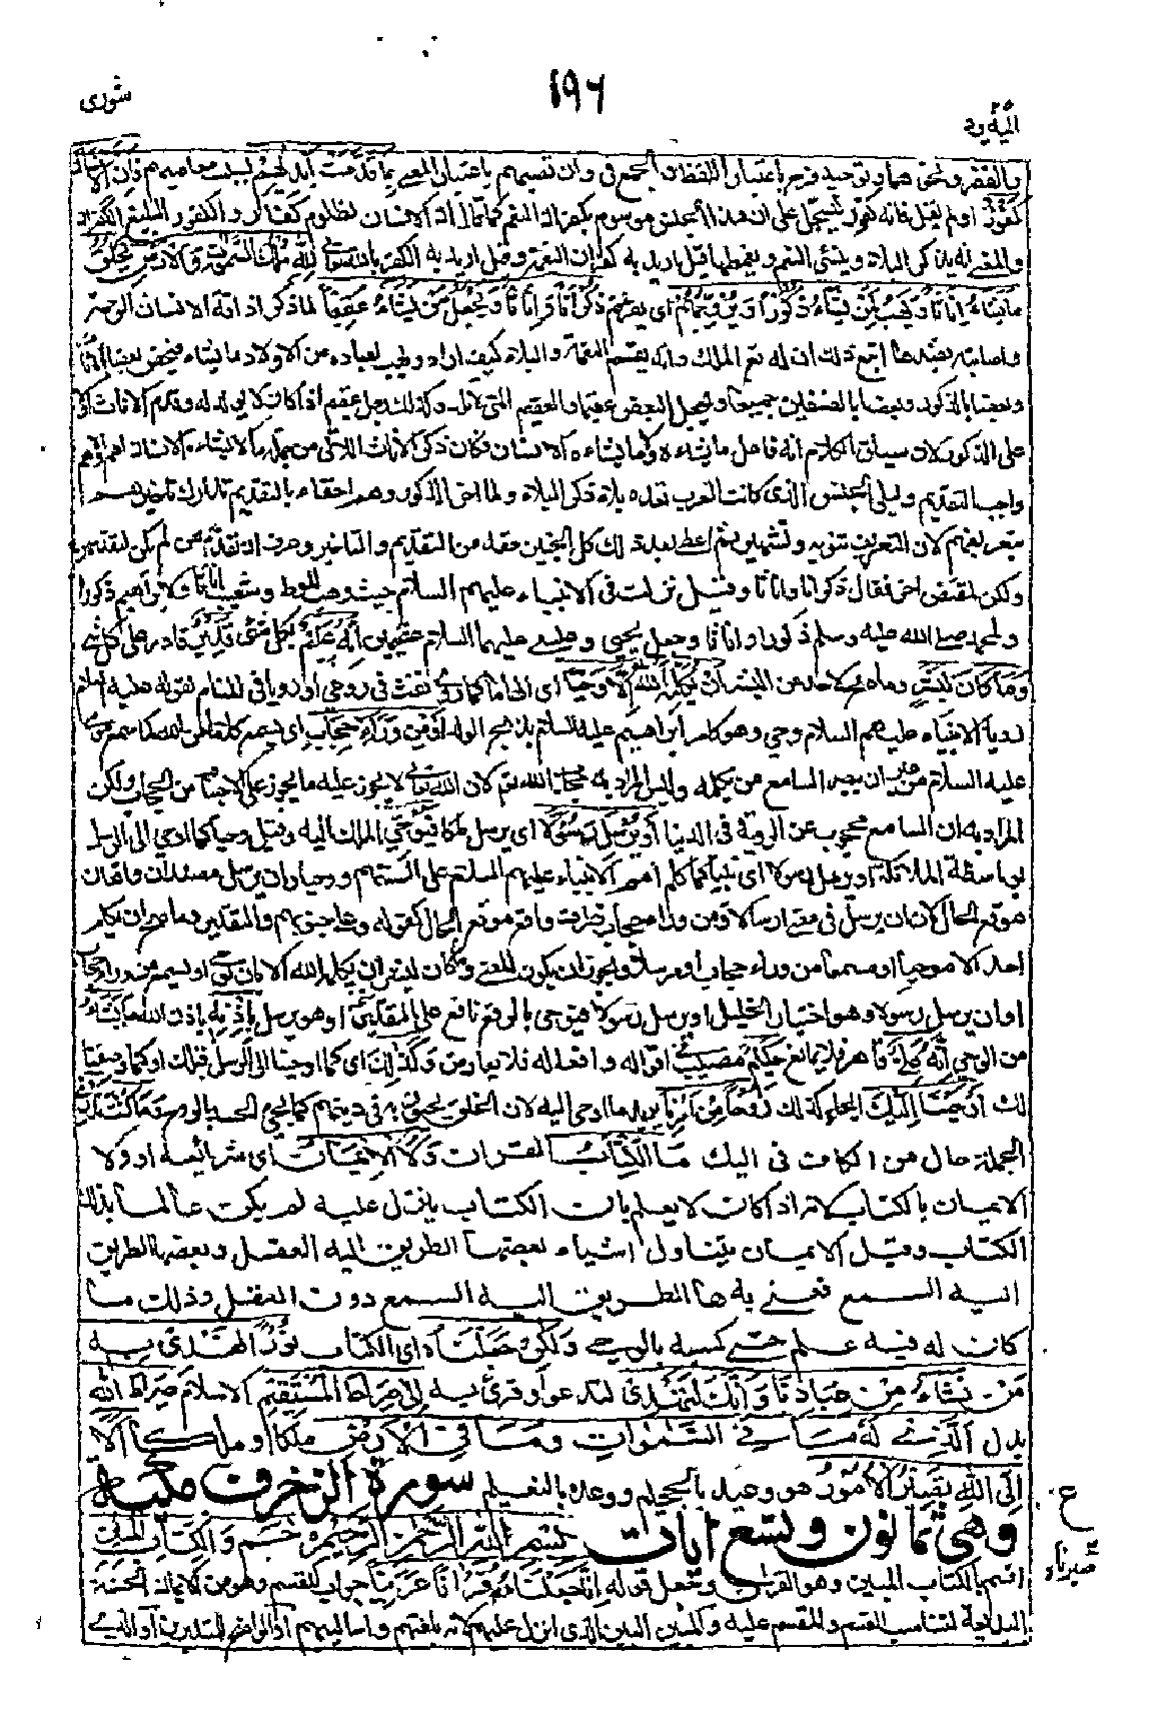 ١٩٦
شورى
اليه يرد
والفقر ونحوهما وتوحيد فرح باعتبار اللفظ والجمع في وان تصبهم باعتبار المعنى بما قدمت ايديهم بسبب معاصيهم فان الانسان
كفور ولم يقل فانه كفور ليسجل على ان هذا الجنس موسوم بكفران النعم كما قال ان الانسان لظلوم كفار والكفور البليغ الكفران
والمعنى انه يذكر البلاء وينسى النعم ويغمطها قيل اريد به كفران النعمة وقيل اريد به الكفر بالله تعالى لله ملك السموات والارض يخلق
ما يشاء يهب لمن يشاء اناثا ويهب لمن يشاء الذكور او يزوجهم اي يقرنهم ذكرانا واناثا ويجعل من يشاء عقيما لما ذكر اذاقة الانسان الرحمة
واصابته بضدها اتبع ذلك ان له تعالى الملك وانه يقسم النعمة والبلاء كيف اراد ويهب لعباده من الاولاد ما يشاء فيخص بعضا بالاناث
وبعضا بالذكور وبعضا بالصنفين جميعا ويجعل البعض عقيما والعقيم التي لا تلد وكذلك رجل عقيم اذا كان لا يولد له وقدم الاناث اولا
على الذكور لان سياق الكلام انه فاعل ما يشاءه لا ما يشاءه الانسان فكان ذكر الاناث اللاتي من جملة ما لا يشاءه الانسان اهم والاهم
واجب التقديم وليلي الجنس الذي كانت العرب تعده بلاء ذكر البلاء ولما اخر الذكور وهم احقاء بالتقديم تدارك تاخيرهم
بتعريفهم لان التعريف تنويه وتشهير ثم اعطى بعد ذلك كل الجنسين حقه من التقديم والتاخير وعرف ان تقديمهن لم يكن لتقدمهن
ولكن لمقتض اخر فقال ذكرانا واناثا وقيل نزلت في الانبياء عليهم السلام حيث وهب للوط وشعيب اناثا ولابراهيم ذكورا
ولمحمد صلى الله عليه وسلم ذكورا واناثا وجعل يحيى وعيسى عليهما السلام عقيمين انه عليم بكل شئ قدير قادر على كل شئ
وما كان لبشر وما صح لاحد من البشر ان يكلمه الله الا وحيا اي الهاما كما روي نفث في روعي او رويا في المنام لقوله عليه السلام
رويا الانبياء عليهم السلام وحي وهو كامر ابراهيم عليه السلام بذبح الولد او من وراء حجاب اي يسمع كلاما من الله كما سمع موسى
عليه السلام من غير ان يبصر السامع من يكلمه وليس المراد به حجاب الله تعالى لان الله تعالى لا يجوز عليه ما يجوز على الاجسام من الحجاب ولكن
المراد به ان السامع محجوب عن الروية في الدنيا او يرسل رسولا اي يرسل ملكا فيوحي الملك اليه وقيل وحيا كما اوحي الى الرسل
بواسطة الملائكة او يرسل رسولا اي نبيا كما كلم امم الانبياء عليهم السلام على السنتهم ووحيا وان يرسل مصدران واقعان
موقع الحال لان ان يرسل في معنى ارسالا ومن وراء حجاب ظرف واقع موقع الحال كقوله وعلى جنوبهم والتقدير وما صح ان يكلم
احدا الا موحيا او مسمعا من وراء حجاب او مرسلا ويجوز ان يكون المعنى وما كان لبشر ان يكلمه الله الا بان يوحي او يسمع من وراء حجاب
او ان يرسل رسولا وهو اختيار الخليل او يرسل رسولا فيوحي بالرفع نافع على تقدير او هو يرسل باذنه باذن الله ما يشاء
من الوحي انه علي قاهر فلا يمانع حكيم مصيب في اقواله وافعاله فلا يعارض وكذلك اي كما اوحينا الى الرسل قبلك او كما وصفنا
لك اوحينا اليك ايحاء كذلك روحا من امرنا يريد ما اوحى اليه لان الخلق يحيون به في دينهم كما يحيى الجسد بالروح ما كنت تدري
الجملة حال من الكاف في اليك ما الكتاب القران ولا الايمان اي شرائعه او ولا
الايمان بالكتاب لانه اذا كان لا يعلم بان الكتاب ينزل عليه لم يكن عالما بذلك
الكتاب وقيل الايمان يتناول اشياء بعضها الطريق اليه العقل وبعضها الطريق
اليه السمع فعنى به ما الطريق اليه السمع دون العقل وذلك ما
كان له فيه علم حتى كسبه بالوحي ولكن جعلناه اي الكتاب نورا نهدي به
من نشاء من عبادنا وانك لتهدي لتدعو وقرئ به الى صراط مستقيم الاسلام صراط الله
بدل الذي له ما في السموات وما في الارض ملكا وملكا الا
الى الله تصير الامور هو وعيد بالجحيم ووعد بالنعيم سورة الزخرف مكية
وهي ثمانون وتسع ايات بسم الله الرحمن الرحيم حم والكتاب المبين
اقسم بالكتاب المبين وهو القران وجعل قوله انا جعلناه قرانا عربيا جوابا للقسم وهو من الايمان الحسنة
البديعة لتناسب القسم والمقسم عليه والمبين البين للذي انزل عليهم لانه بلغتهم واساليبهم او الواضح للمتدبرين او الذي
ع